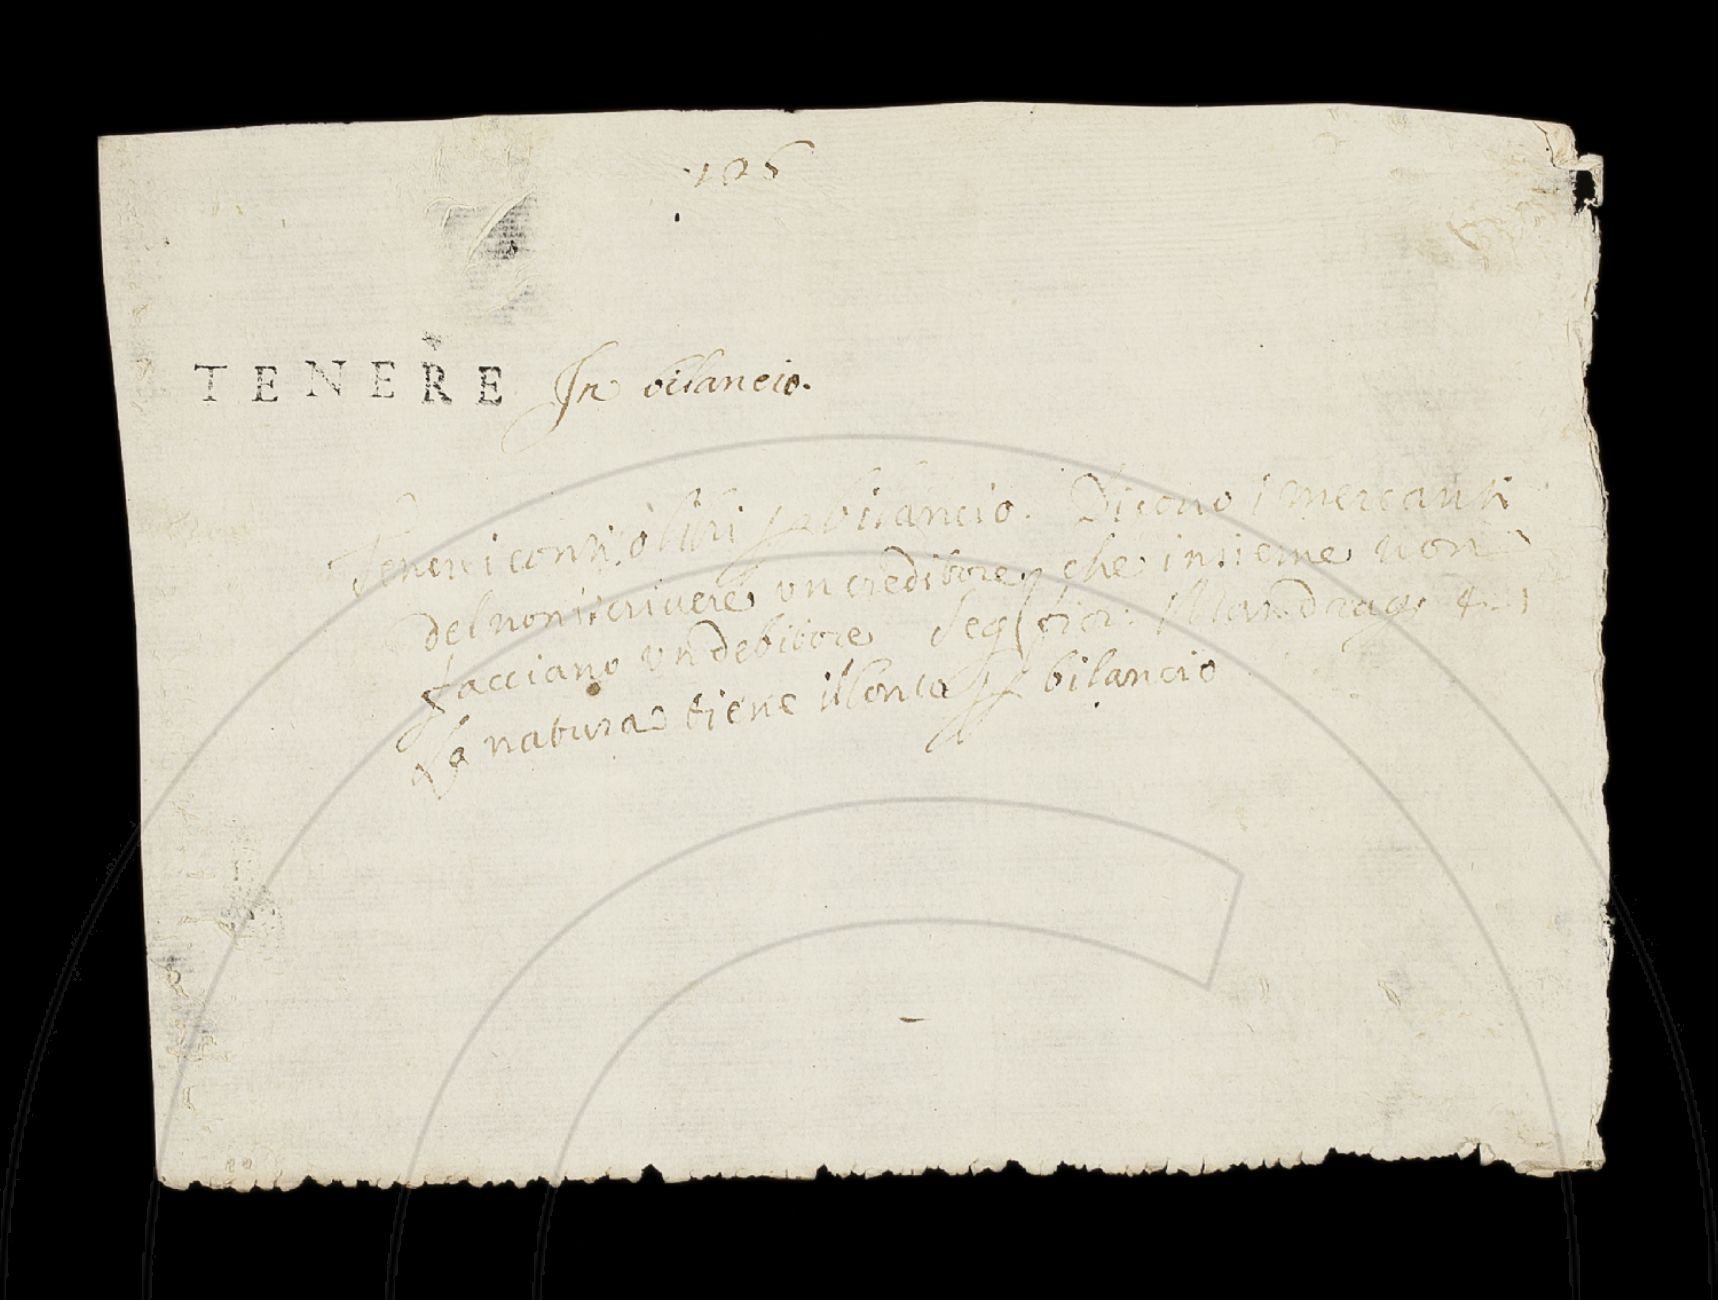 126
TENERE In bilancio.
Tenere i conti, o libri per bilancio. Dicono i mercanti
del non iscrivere un creditore, che insieme non
facciano un debitore Seg. fior: Mandrag. 4. 1
La natura tiene il conto per bilancio